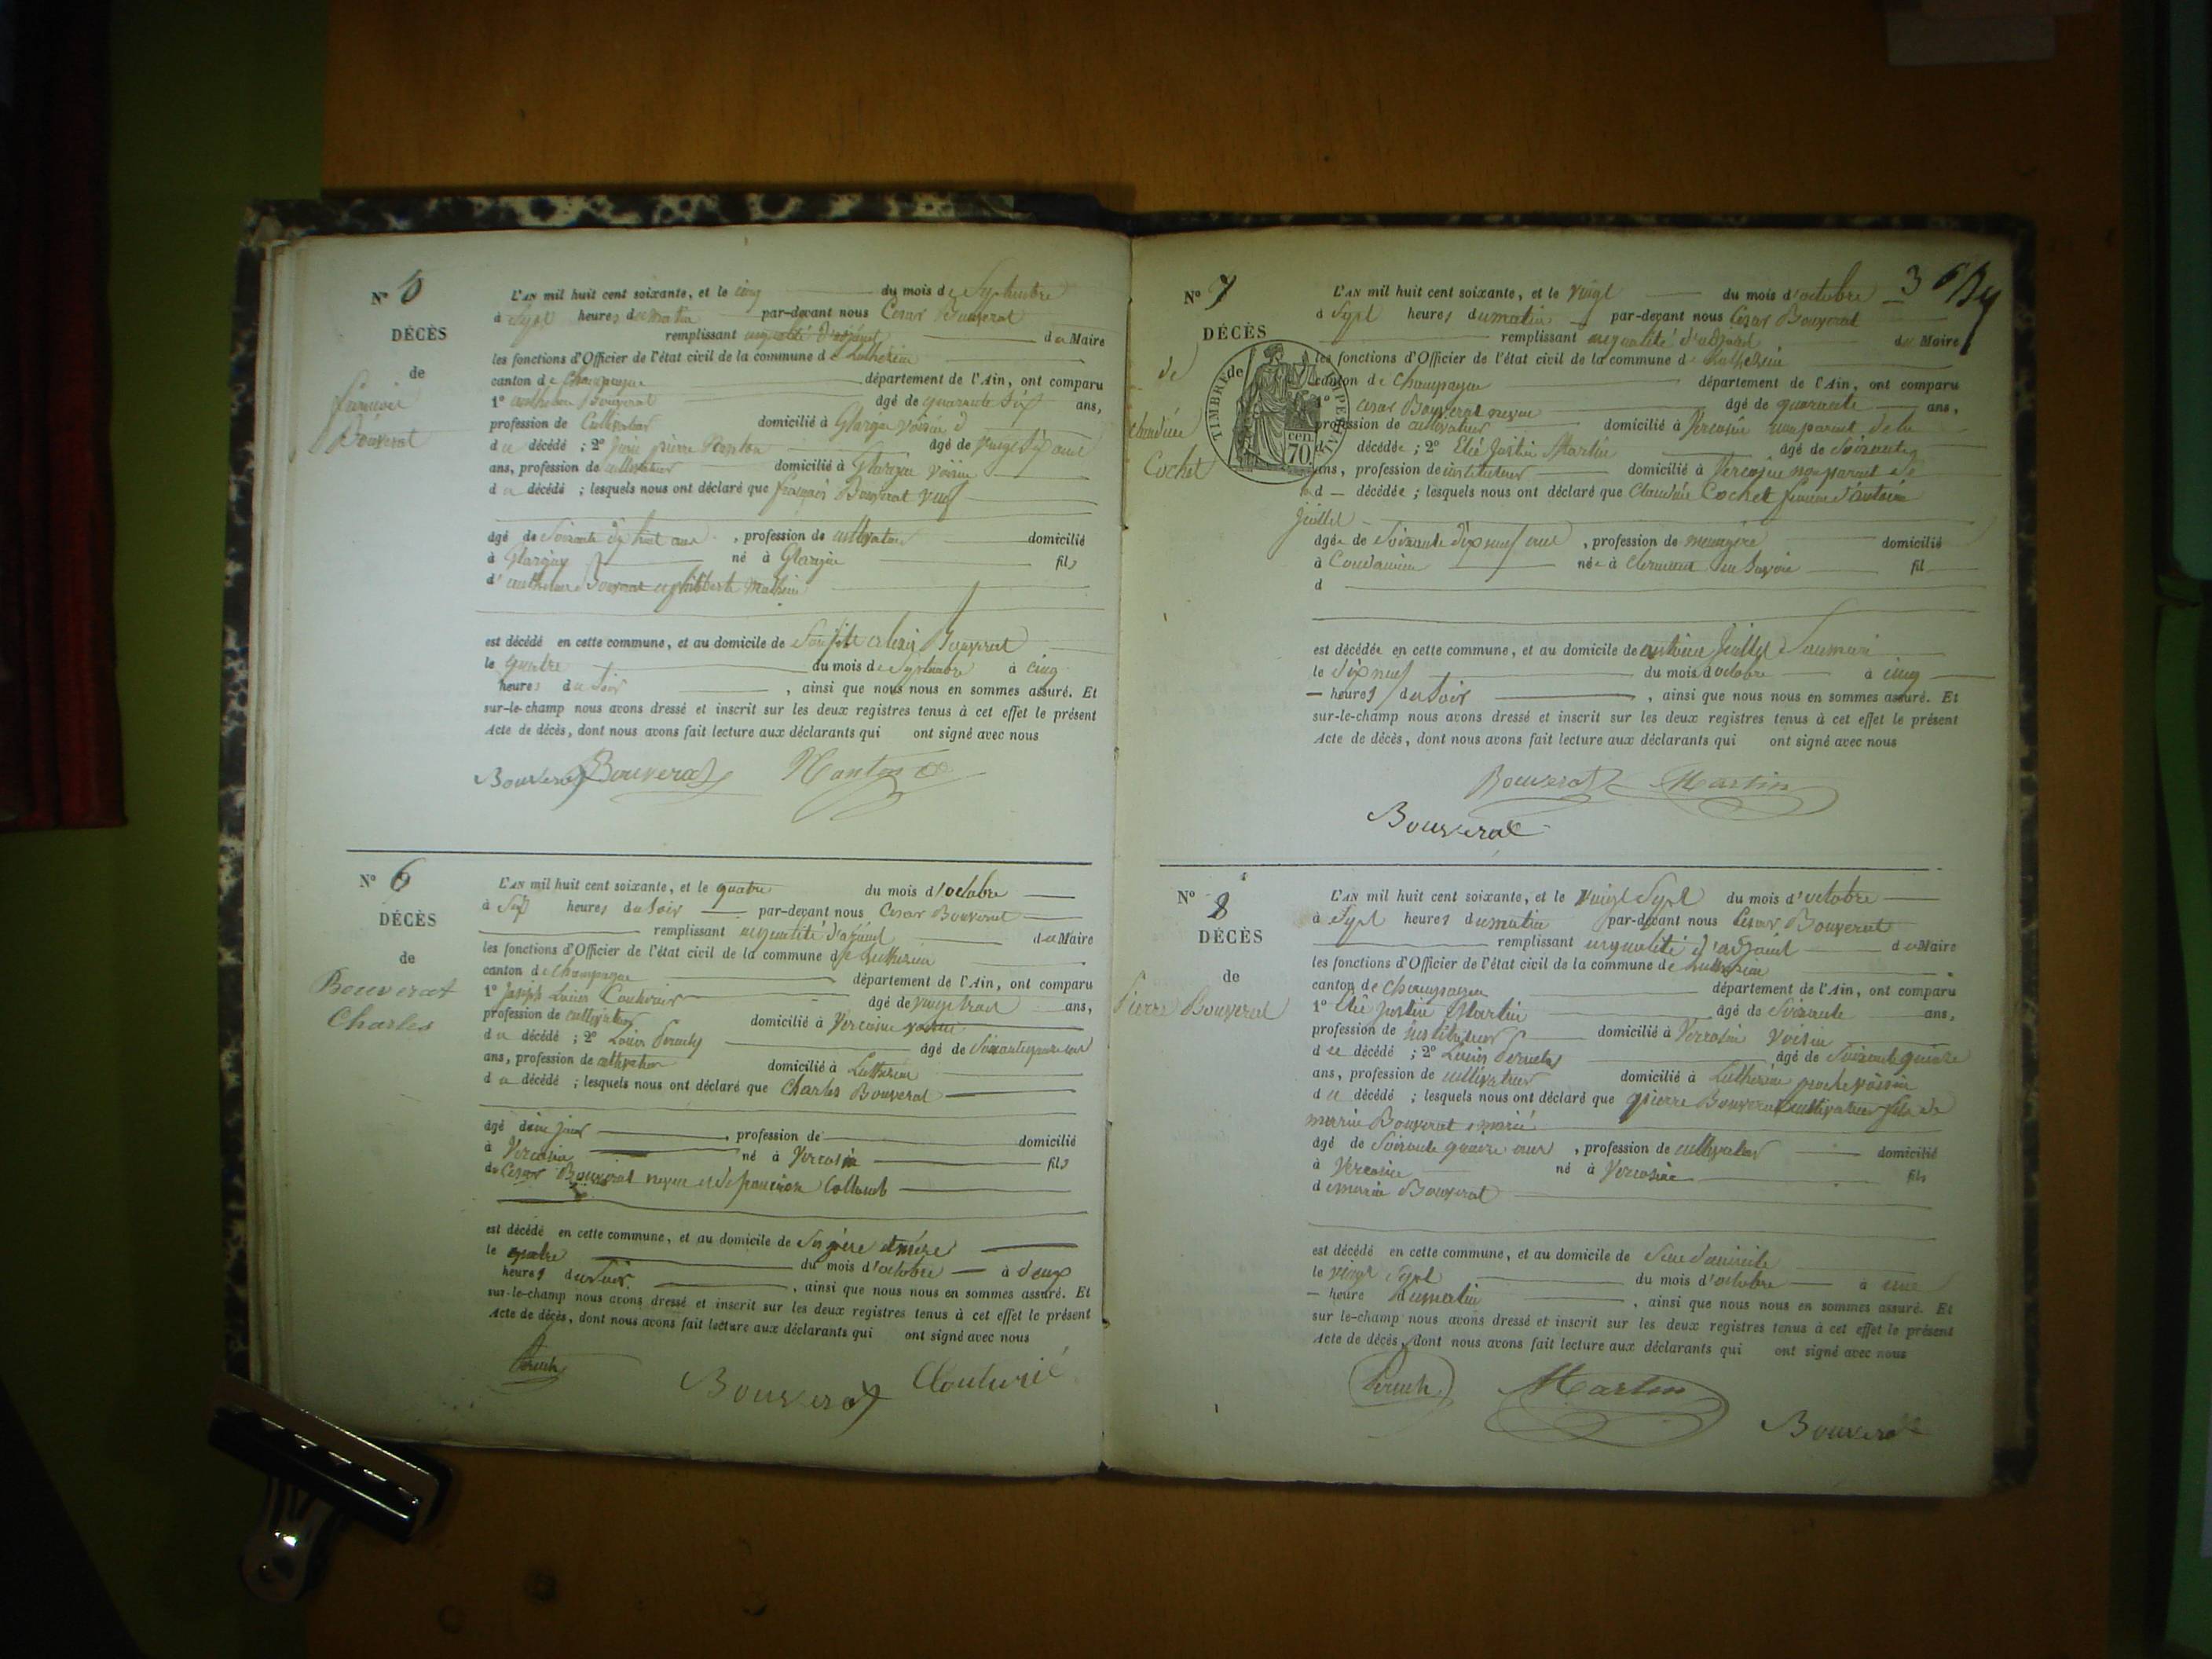 N° 5
DÉCÈS
de
françois
Bouverat
L'AN mil huit cent soixante, et le cinq du mois de Septembre
à Sept heures du matin par-devant nous Cesar Bouverat
remplissant du Maire
les fonctions d'Officier de l'état civil de la commune de Luthézieu
canton de Champagne département de l'Ain, ont comparu
1° Bouverat âgé de quarante Six ans,
profession de Cultivateur domicilié à voisin
du décédé ; 2° pierre âgé de Vingt Six ans
ans, profession de cultivateur domicilié à voisin
du décédé ; lesquels nous ont déclaré que françois Bouverat veuf
âgé de Soixante dix huit ans , profession de cultivateur domicilié
à né à fils
d'
est décédé en cette commune, et au domicile de Son fils Bouverat
le quatre du mois de Septembre à cinq
heures du Soir , ainsi que nous nous en sommes assuré. Et
sur-le-champ nous avons dressé et inscrit sur les deux registres tenus à cet effet le présent
Acte de décès, dont nous avons fait lecture aux déclarants qui ont signé avec nous
Bouverat Bouverat
N° 6
DÉCÈS
de
Bouverat
Charles
L'AN mil huit cent soixante, et le quatre du mois d'octobre
à Six heures du Soir par-devant nous Cesar Bouverat
remplissant du Maire
les fonctions d'Officier de l'état civil de la commune de Luthezieu
canton de Champagne département de l'Ain, ont comparu
1° Joseph Louis âgé de vingt trois ans,
profession de cultivateur domicilié à Vercosin voisin
du décédé ; 2° Louis âgé de Soixante quinze ans
ans, profession de cultivateur domicilié à Luthezieu
du décédé ; lesquels nous ont déclaré que Charles Bouverat
âgé jour , profession de domicilié
à Vercosin né à Vercosin fils
de Cesar Bouverat neveu et de Collomb
est décédé en cette commune, et au domicile de Ses père et mère
le quatre du mois d'octobre à deux
heures du Soir , ainsi que nous nous en sommes assuré. Et
sur-le-champ nous avons dressé et inscrit sur les deux registres tenus à cet effet le présent
Acte de décès, dont nous avons fait lecture aux déclarants qui ont signé avec nous
Bouverat
3
N° 7
DÉCÈS
de
de
Claudine
Cochet
TIMBRE IMPERIAL
cen.
70
L'AN mil huit cent soixante, et le vingt du mois d'octobre
à Sept heures du matin par-devant nous Cesar Bouverat
remplissant en qualité d'adjoint du Maire
les fonctions d'Officier de l'état civil de la commune de Luthezieu
canton de Champagne département de l'Ain, ont comparu
1° Cesar Bouverat neveu âgé de quarante ans,
profession de cultivateur domicilié à Vercosin non parent de la
décédée ; 2° Elie Justin Martin âgé de Soixante
ans, profession de instituteur domicilié à Vercosin non parent de
la d décédée ; lesquels nous ont déclaré que Claudine Cochet femme d'antoine
Juillet
âgée de Soixante dix neuf ans , profession de menagère domicilié
à née à clermont en Savoie fil
d
est décédée en cette commune, et au domicile de antoine Juillet Son mari
le dix neuf du mois d'octobre à cinq
heures du Soir , ainsi que nous nous en sommes assuré. Et
sur-le-champ nous avons dressé et inscrit sur les deux registres tenus à cet effet le présent
Acte de décès, dont nous avons fait lecture aux déclarants qui ont signé avec nous
Bouverat Martin
Bouverat
N° 8
DÉCÈS
de
Pierre Bouverat
L'AN mil huit cent soixante, et le Vingt Sept du mois d'octobre
à Sept heures du matin par-devant nous Cesar Bouverat
remplissant en qualité d'adjoint du Maire
les fonctions d'Officier de l'état civil de la commune de Luthezieu
canton de Champagne département de l'Ain, ont comparu
1° Elie Justin Martin âgé de Soixante ans,
profession de instituteur domicilié à Vercosin Voisin
du décédé ; 2° Louis âgé de Soixante quinze
ans, profession de cultivateur domicilié à Luthezieu proche voisin
du décédé ; lesquels nous ont déclaré que pierre Bouverat cultivateur fils de
Bouverat
âgé de Soixante quinze ans , profession de cultivateur domicilié
à Vercosin né à Vercosin fils
de Bouverat
est décédé en cette commune, et au domicile de Son domicile
le vingt Sept du mois d'octobre à une
heure du matin , ainsi que nous nous en sommes assuré. Et
sur le-champ nous avons dressé et inscrit sur les deux registres tenus à cet effet le présent
Acte de décès, dont nous avons fait lecture aux déclarants qui ont signé avec nous
Martin
Bouverat